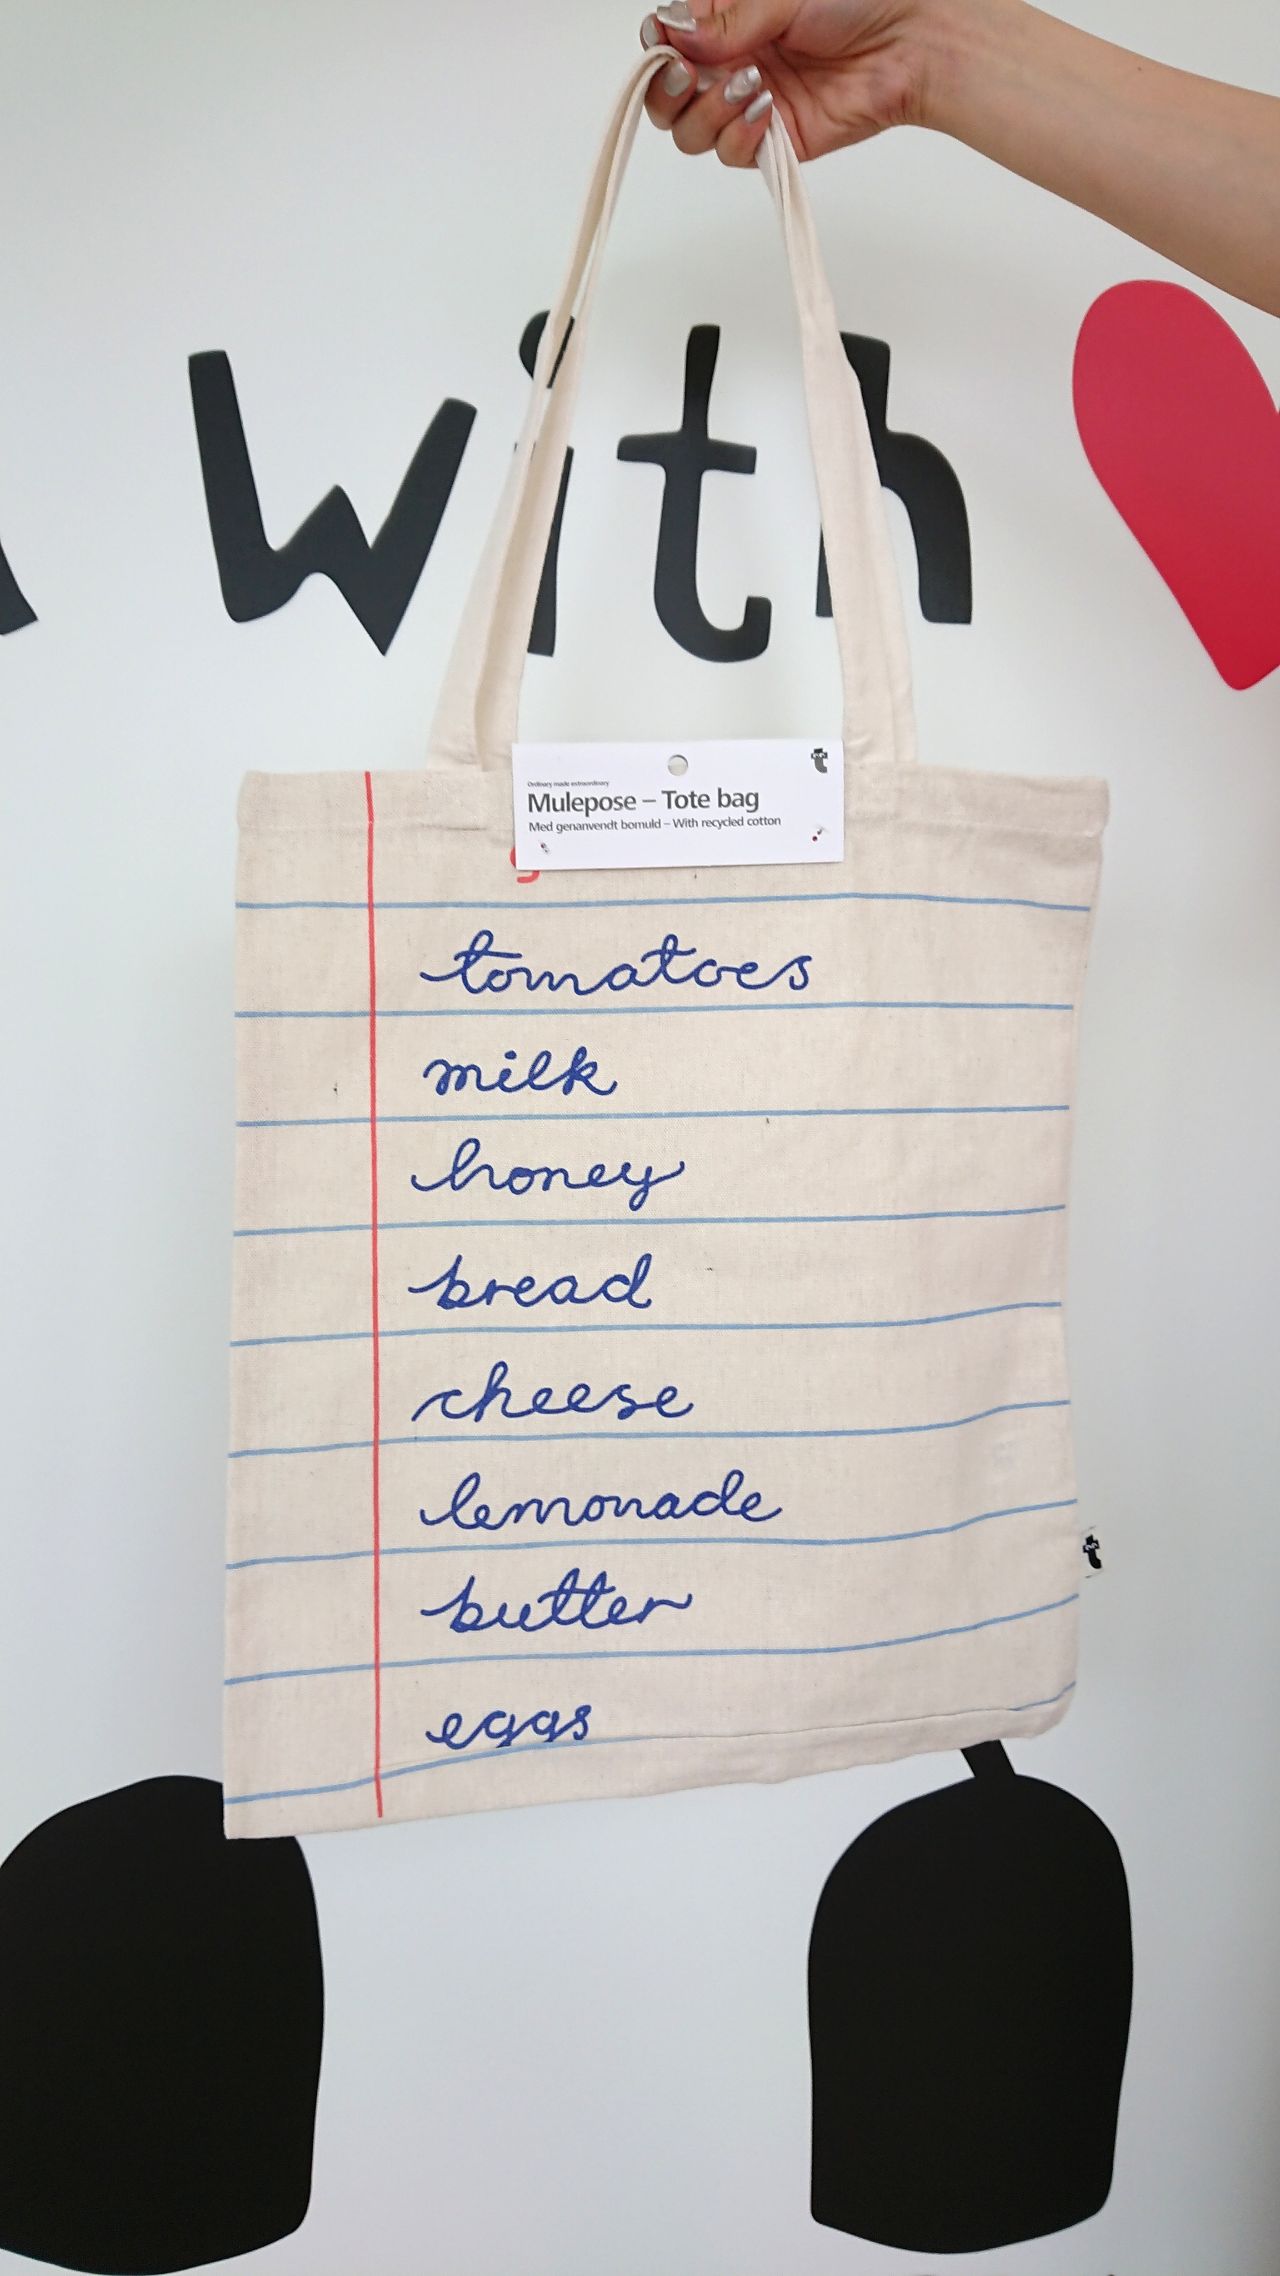 with
Ordinary made extraordinary
Mulepose – Tote bag
Med genanvendt bomuld – With recycled cotton
tomatoes
milk
honey
bread
cheese
lemonade
butter
eggs